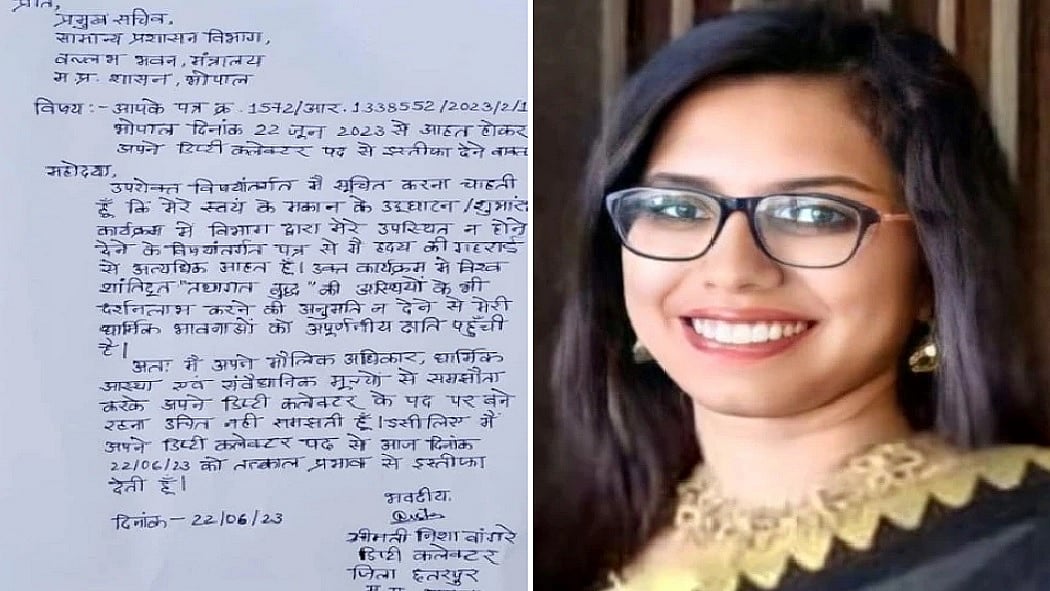 प्रति,
प्रमुख सचिव,
सामान्य प्रशासन विभाग,
वल्लभ भवन, मंत्रालय
म.प्र. शासन, भोपाल
विषय :- आपके पत्र क्र. 1572/आर. 1338552/2023/2/1
भोपाल दिनांक 22 जून 2023 से आहत होकर
अपने डिप्टी कलेक्टर पद से इस्तीफा देने
महोदया,
उपरोक्त विषयांतर्गत मैं सूचित करना चाहती
हूँ कि मेरे स्वयं के मकान के उद्घाटन /
कार्यक्रम में विभाग द्वारा मेरे उपस्थित न होने
देने के विषयांतर्गत पत्र से मैं हृदय की गहराई
से अत्यधिक आहत हूँ। उक्त कार्यक्रम में विश्व
शांतिदूत "तथागत बुद्ध" की अस्थियों के भी
दर्शनलाभ करने की अनुमति न देने से मेरी
धार्मिक भावनाओं को अपूर्णनीय क्षति पहुँची
है।
अतः मैं अपने मौलिक अधिकार, धार्मिक
आस्था एवं संवैधानिक मूल्यों से समझौता
करके अपने डिप्टी कलेक्टर के पद पर बने
रहना उचित नही समझती हूँ। इसीलिए मैं
अपने डिप्टी कलेक्टर पद से आज दिनांक
22/06/23 को तत्काल प्रभाव से इस्तीफा
देती हूँ।
भवदीय.
दिनांक - 22/06/23
श्रीमती निशा बांगरे
डिप्टी कलेक्टर
जिला छतरपुर